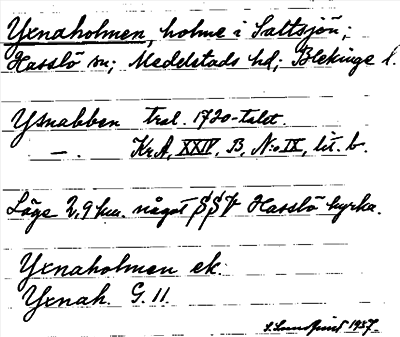 Yxnaholmen, holme i Saltsjön;
Hasslö sn; Medelstads hd; Blekinge l.
Ysnabben trol. 1720-talet.
—. KrA, XXIV, B, N:o IX, lit. b.
Läge 2,9 km. något SSV Hasslö kyrka.
Yxnaholmen ek.
Yxnah. G. 11.
1937